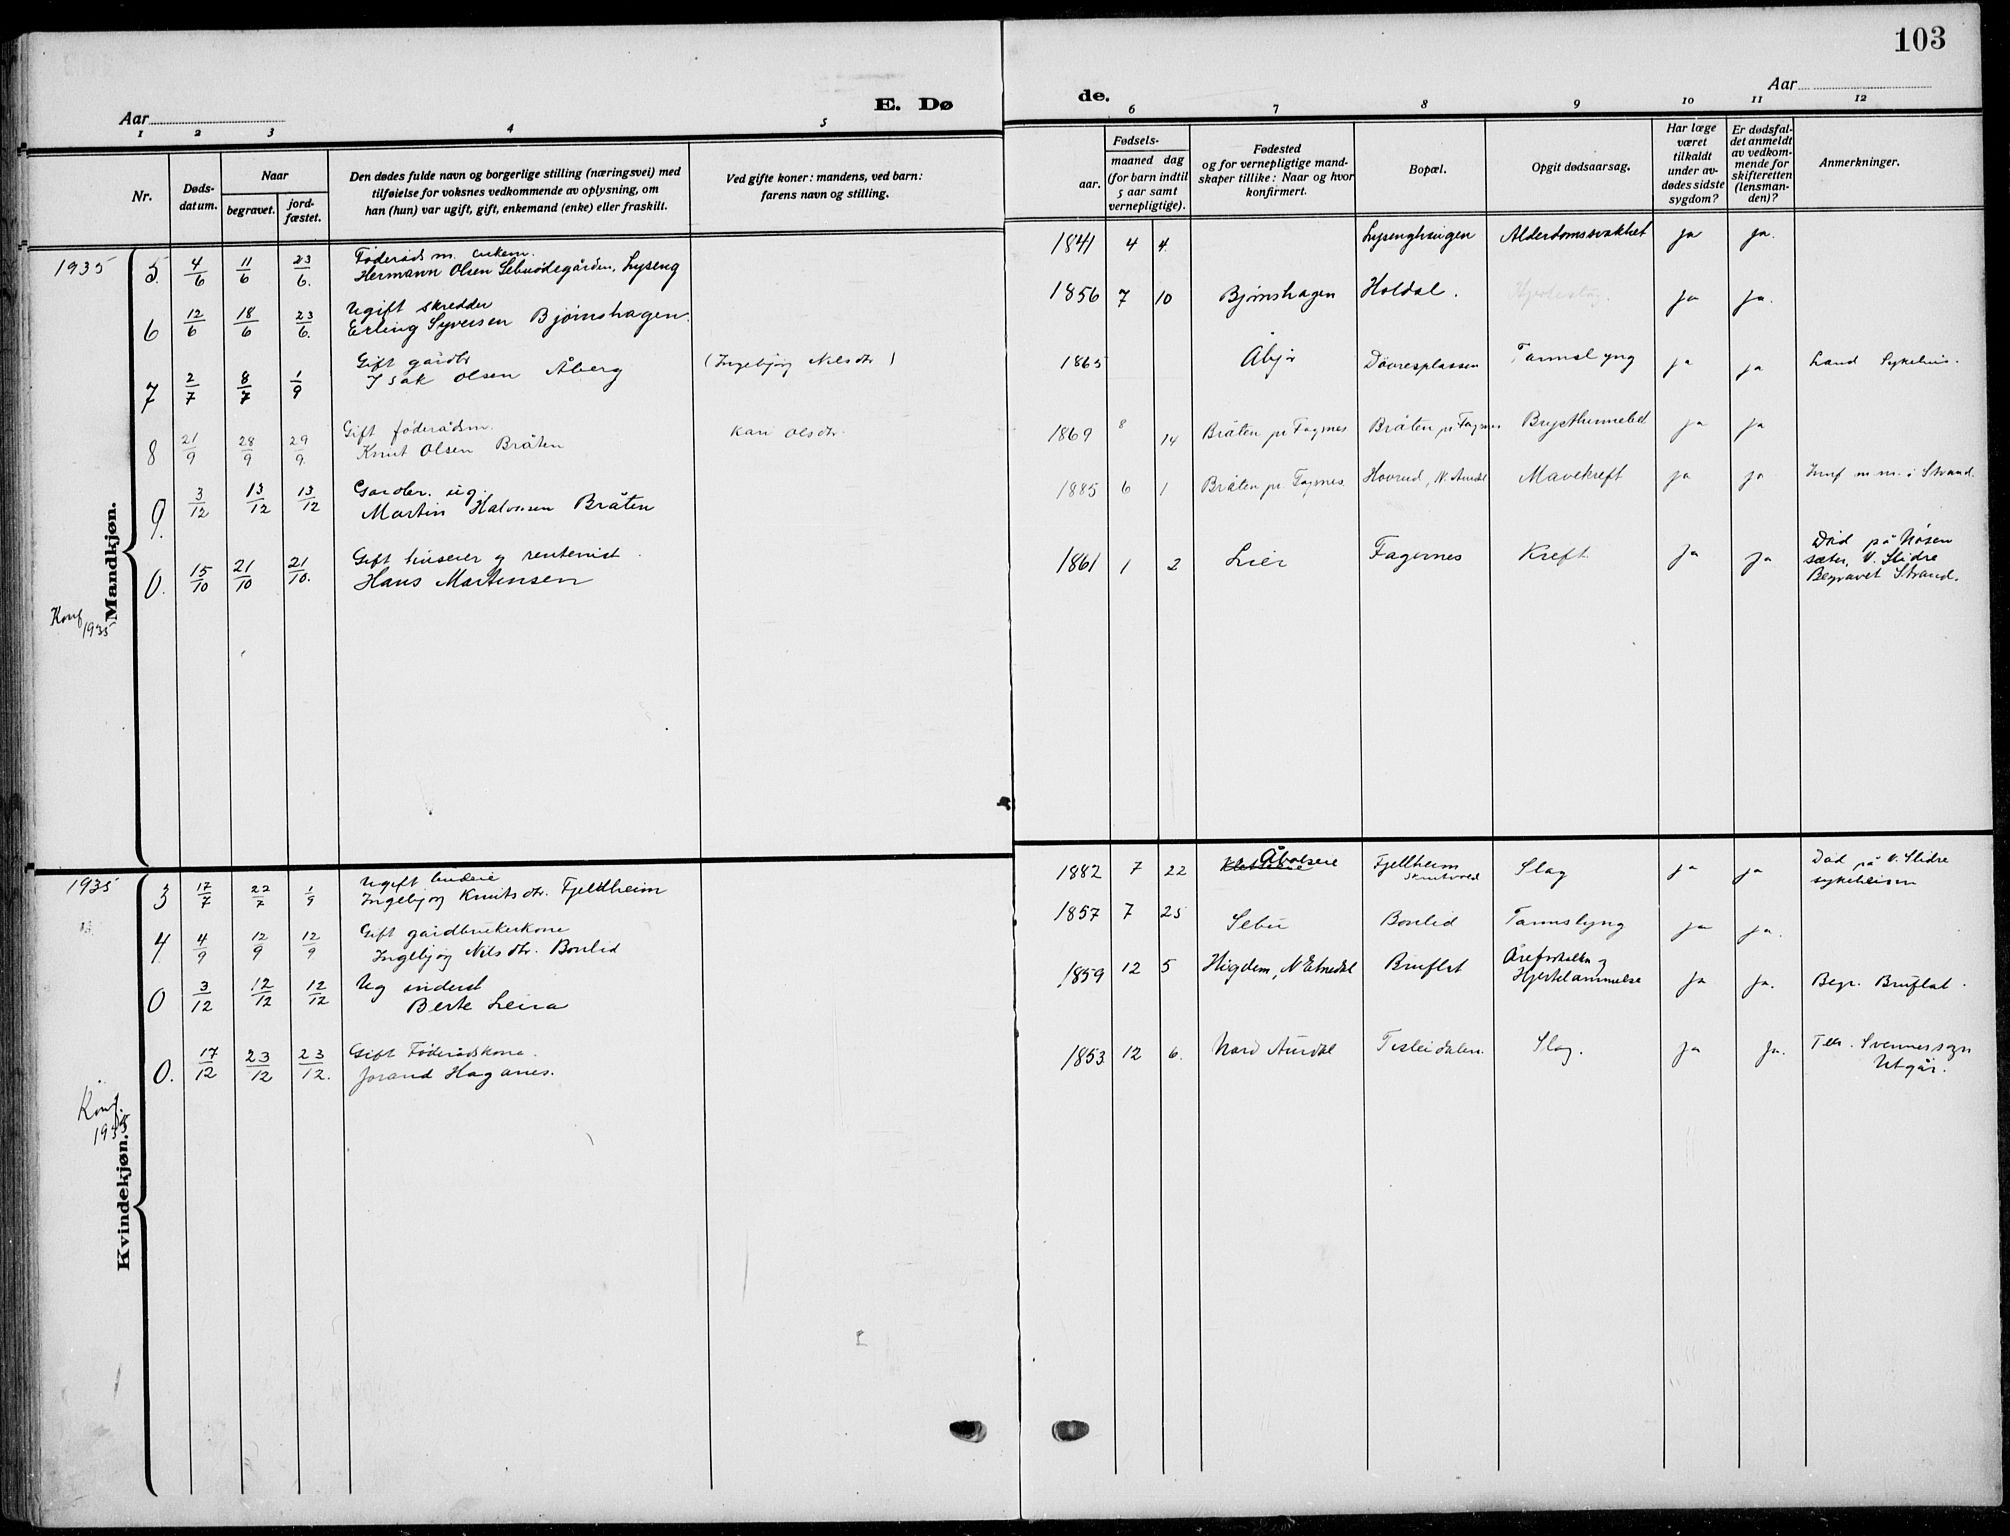 103
Aar
E. Dø
de.
Aar
1 2 3 4 5 6 7 8 9 10 11 12
Nr.
Døds-
datum.
Naar
begravet.
jord-
fæstet.
Den dødes fulde navn og borgerlige stilling (næringsvei) med
tilføielse for voksnes vedkommende av oplysning, om
han (hun) var ugift, gift, enkemand (enke) eller fraskilt.
Ved gifte koner: mandens, ved barn:
farens navn og stilling.
Fødsels-
aar.
maaned dag
(for barn indtil
5 aar samt
vernepligtige).
Fødested
og for vernepligtige mand-
skaper tillike: Naar og hvor
konfirmert.
Bopæl.
Opgit dødsaarsag.
Har læge
været
tilkaldt
under av-
dødes sidste
sygdom?
Er dødsfal-
det anmeldt
av vedkom-
mende for
skifteretten
(lensman-
den)?
Anmerkninger.
Mandkjøn.
1935
Føderåds m. enkem.
5. 4/6 11/6 23/6. Hermann Olsen Sebuødegården, Lyseng 1841 4 4. Lysenghaugen Alderdomssvakhet ja ja.
Ugift skredder
6 12/6 18/6 23/6. Erling Syversen Bjørnshagen. 1856 7 10 Bjørnshagen Holdal. ja ja.
Gift gårdbr
7 2/7 8/7 1/9 Isak Olsen Åberg (Ingebjørg Nilsdtr) 1865 Åbjør Tarmslyng ja ja Land Sykehus.
Gift føderådsm.
8 21/9 28/9 29/9. Knut Olsen Bråten Kari Olsdtr. 1869 8 14 Bråten pr Fagrnes Bråten pr Fagrnes ja ja
Gardbr. ug.
9. 3/12 13/12 13/12 Martin Halvorsen Bråten 1885 6 1 Bråten pr. Fagrnes Hovrud, N. Aurdal Mavekreft ja ja Innf m.m. i Strand.
Gift huseier og rentenist.
0. 15/10 21/10 21/10. Hans Martinsen 1861 1 2 Lier Fagernes Kreft. ja ja
Død på Nøsen
sæter, V. Slidre
Begravet Strand.
Konf
1935
Kvindekjøn.
1935
Ugift budeie
3 17/7 22/7 1/9 Ingebjørg Knutsdtr. Fjeldheim 1882 7 22 Åbolseie Fjellheim Slag ja ja
Død på V. Slidre
sykeheim
Gift gårdbrukerkone
4 4/9 12/9 12/9 Ingebjørg Nilsdtr. Bonlid 1857 7 25 Sebu Bonlid Tarmslyng ja ja.
Ug inderst
0 3/12 12/12 12/12 Berte Leira 1859 12 5 Høgdem, N Etnedal Bruflat
Åreforkalkn og
Hjertelammelse ja ja. Begr. Bruflat.
Gift Føderådskone.
0. 17/12 23/12 23/12. Jorand Haganes. 1853 12 6. Nord Aurdal Tisleidalen. Slag. ja ja.
Tilh. Svennes sogn
Utgår.
Konf.
1935